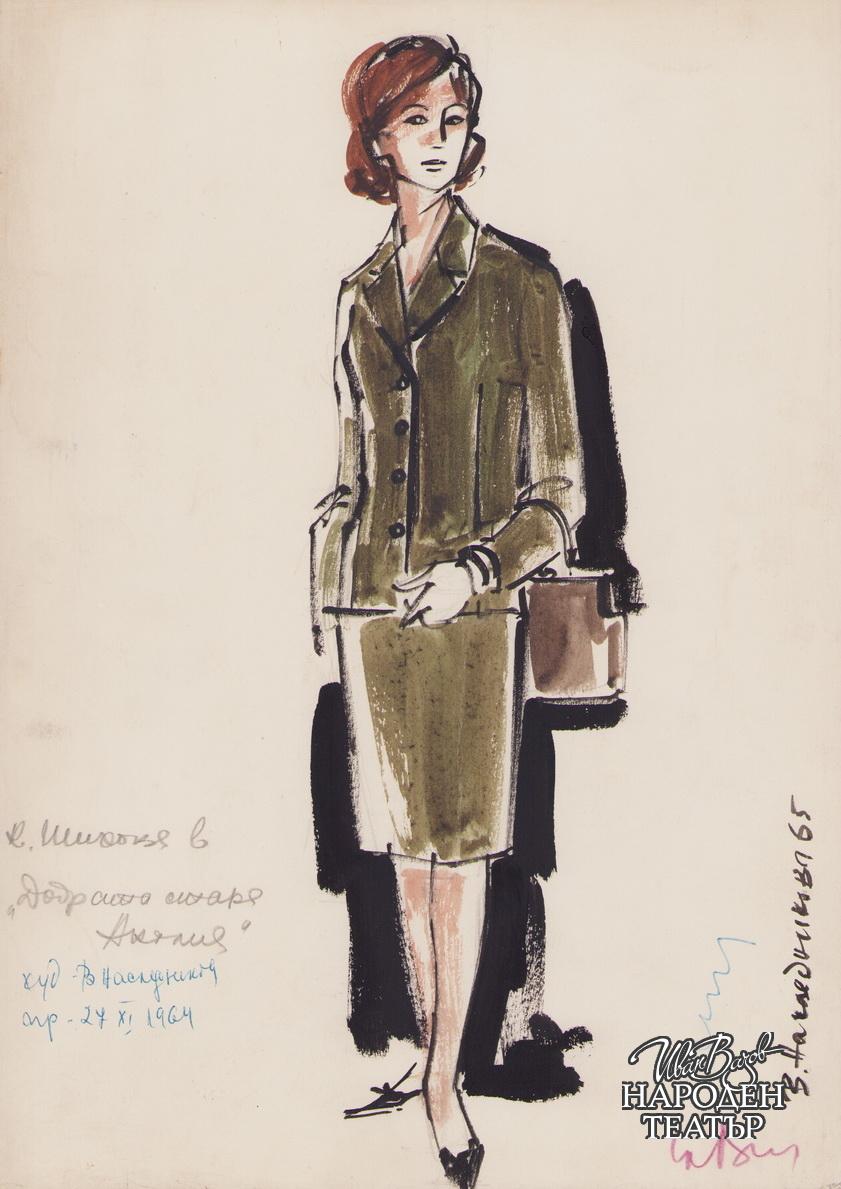 К. Шипова в
"Добрата стара
Англия"
худ - В Наследников
пр - 27 XI 1964
В. Наследниковъ 65
Иван Вазов
НАРОДЕН
ТЕАТЪР